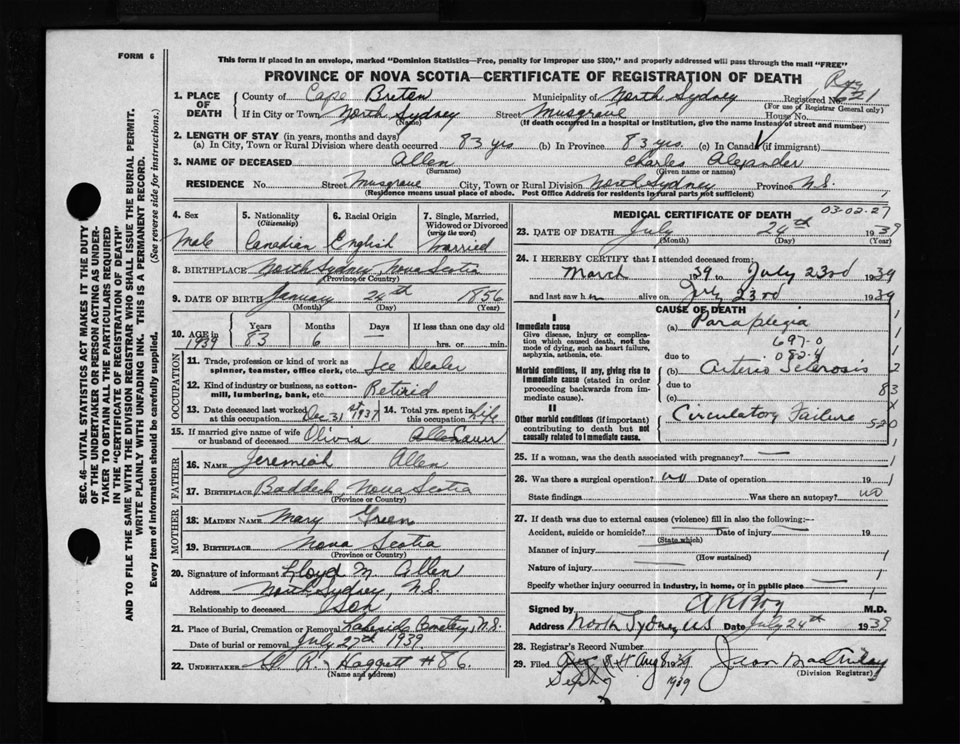 FORM 6
This form if placed in an envelope, marked "Dominion Statistics—Free, penalty for improper use $300," and properly addressed will pass through the mail "FREE"
PROVINCE OF NOVA SCOTIA—CERTIFICATE OF REGISTRATION OF DEATH
1. PLACE OF DEATH
County of Cape Breton Municipality of North Sydney Registered No.
(For use of Registrar General only)
If in City or Town North Sydney Street Musgrave House No.
(Name) (If death occurred in a hospital or institution, give the name instead of street and number)
2. LENGTH OF STAY (in years, months and days)
(a) In City, Town or Rural Division where death occurred 83 yrs (b) In Province 83 yrs. (c) In Canada (if immigrant)
3. NAME OF DECEASED Allen Charles Alexander
(Surname) (Given name or names)
RESIDENCE No. Street Musgrave City, Town or Rural Division North Sydney Province N.S.
(Residence means usual place of abode. Post Office Address for residents in rural parts not sufficient)
4. Sex Male
5. Nationality (Citizenship) Canadian
6. Racial Origin English
7. Single, Married, Widowed or Divorced (write the word) Married
8. BIRTHPLACE North Sydney, Nova Scotia
(Province or Country)
9. DATE OF BIRTH January 24th 1856
(Month) (Day) (Year)
10. AGE in 1939 Years 83 Months 6 Days — If less than one day old hrs. or min.
OCCUPATION
11. Trade, profession or kind of work as spinner, teamster, office clerk, etc. Ice Dealer
12. Kind of industry or business, as cotton-mill, lumbering, bank, etc. Retired
13. Date deceased last worked at this occupation Dec 31st 1937 14. Total yrs. spent in this occupation Life
15. If married give name of wife or husband of deceased Olivia Allen
FATHER
16. NAME Jeremiah Allen
17. BIRTHPLACE Baddeck, Nova Scotia
(Province or Country)
MOTHER
18. MAIDEN NAME Mary Green
19. BIRTHPLACE Nova Scotia
(Province or Country)
20. Signature of informant Lloyd M Allen
Address North Sydney, N.S.
Relationship to deceased Son
21. Place of Burial, Cremation or Removal Lakeside Cemetery, N.S.
Date of burial or removal July 27th 1939.
22. UNDERTAKER Haggett #86.
(Name and address)
MEDICAL CERTIFICATE OF DEATH
03-02-27
23. DATE OF DEATH July 24th 1939
(Month) (Day) (Year)
24. I HEREBY CERTIFY that I attended deceased from:
March 1939 to July 23rd 1939
and last saw him alive on July 23rd 1939
CAUSE OF DEATH
I
Immediate cause
Give disease, injury or complication which caused death, not the mode of dying, such as heart failure, asphyxia, asthenia, etc.
(a) Paraplegia
697-0
082-4
Morbid conditions, if any, giving rise to immediate cause (stated in order proceeding backwards from immediate cause).
due to
(b) Arterio Sclerosis
due to
(c)
83
II
Other morbid conditions (if important) contributing to death but not causally related to immediate cause.
Circulatory Failure
520
25. If a woman, was the death associated with pregnancy? —
26. Was there a surgical operation? no Date of operation 19
State findings Was there an autopsy? no
27. If death was due to external causes (violence) fill in also the following:—
Accident, suicide or homicide? Date of injury 19
(State which)
Manner of injury
(How sustained)
Nature of injury
Specify whether injury occurred in industry, in home, or in public place
Signed by M.D.
Address North Sydney NS Date July 24th 1939
28. Registrar's Record Number
29. Filed Aug 8 1939
1939
(Division Registrar)
SEC. 46—VITAL STATISTICS ACT MAKES IT THE DUTY
OF THE UNDERTAKER OR PERSON ACTING AS UNDER-
TAKER TO OBTAIN ALL THE PARTICULARS REQUIRED
IN THE "CERTIFICATE OF REGISTRATION OF DEATH"
AND TO FILE THE SAME WITH THE DIVISION REGISTRAR WHO SHALL ISSUE THE BURIAL PERMIT.
WRITE PLAINLY WITH UNFADING INK. THIS IS A PERMANENT RECORD.
Every item of information should be carefully supplied. (See reverse side for instructions.)